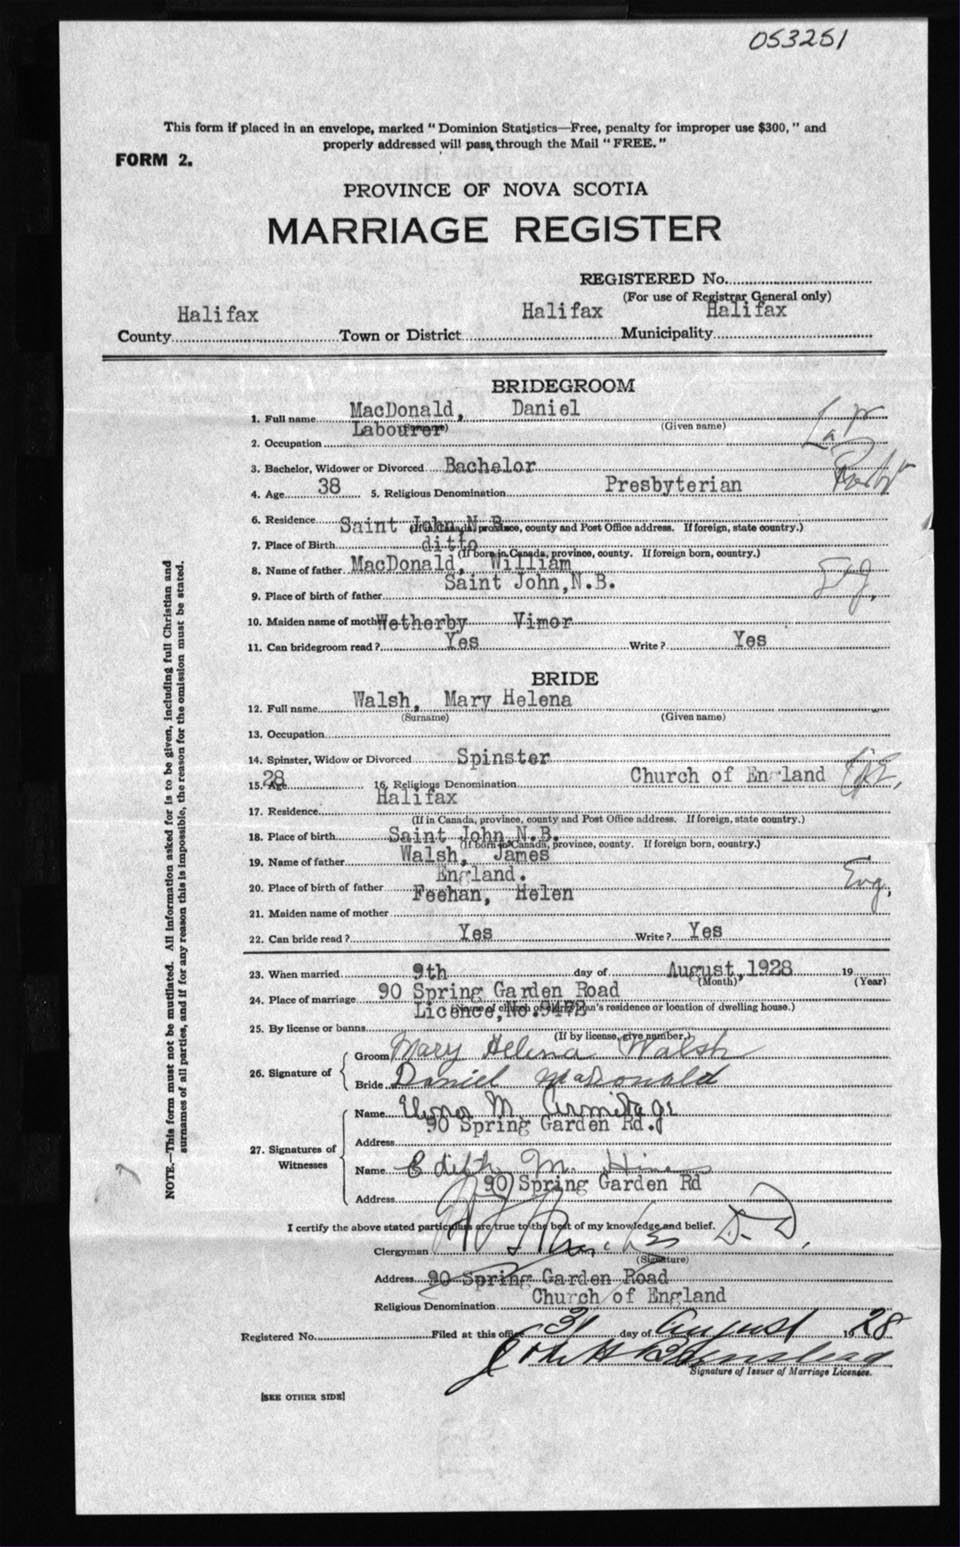 053251
This form if placed in an envelope, marked "Dominion Statistics—Free, penalty for improper use $300," and
properly addressed will pass through the Mail "FREE."
FORM 2.
PROVINCE OF NOVA SCOTIA
MARRIAGE REGISTER
REGISTERED No.
(For use of Registrar General only)
County Halifax Town or District Halifax Municipality Halifax
BRIDEGROOM
1. Full name MacDonald, Daniel
(Given name)
2. Occupation Labourer
3. Bachelor, Widower or Divorced Bachelor
4. Age 38 5. Religious Denomination Presbyterian
6. Residence Saint John N.B.
(If in Canada, province, county and Post Office address. If foreign, state country.)
7. Place of Birth ditto
(If born in Canada, province, county. If foreign born, country.)
8. Name of father MacDonald, William
9. Place of birth of father Saint John, N.B. Eng.
10. Maiden name of mother Wetherby Vimor
11. Can bridegroom read? Yes Write? Yes
BRIDE
12. Full name Walsh, Mary Helena
(Surname) (Given name)
13. Occupation
14. Spinster, Widow or Divorced Spinster
15. Age 28 16. Religious Denomination Church of England
17. Residence Halifax
(If in Canada, province, county and Post Office address. If foreign, state country.)
18. Place of birth Saint John N.B.
(If born in Canada, province, county. If foreign born, country.)
19. Name of father Walsh, James
20. Place of birth of father England. Eng.
21. Maiden name of mother Feehan, Helen
22. Can bride read? Yes Write? Yes
23. When married 9th day of August, 1928 19
(Month) (Year)
24. Place of marriage 90 Spring Garden Road
's residence or location of dwelling house.)
25. By license or banns Licence, No. 9472
(If by license, give number.)
26. Signature of
Groom Mary Helena Walsh
Bride Daniel MacDonald
27. Signatures of Witnesses
Name M. Armitage
Address 90 Spring Garden Rd.
Name Edith M. Hines
Address 90 Spring Garden Rd
I certify the above stated particulars are true to the best of my knowledge and belief.
Clergyman D.D.
(Signature)
Address 90 Spring Garden Road
Religious Denomination Church of England
Registered No. Filed at this office 31 day of August 1928
Signature of Issuer of Marriage Licenses.
[SEE OTHER SIDE]
NOTE.—This form must not be mutilated. All information asked for is to be given, including full Christian and
surnames of all parties, and if for any reason this is impossible, the reason for the omission must be stated.